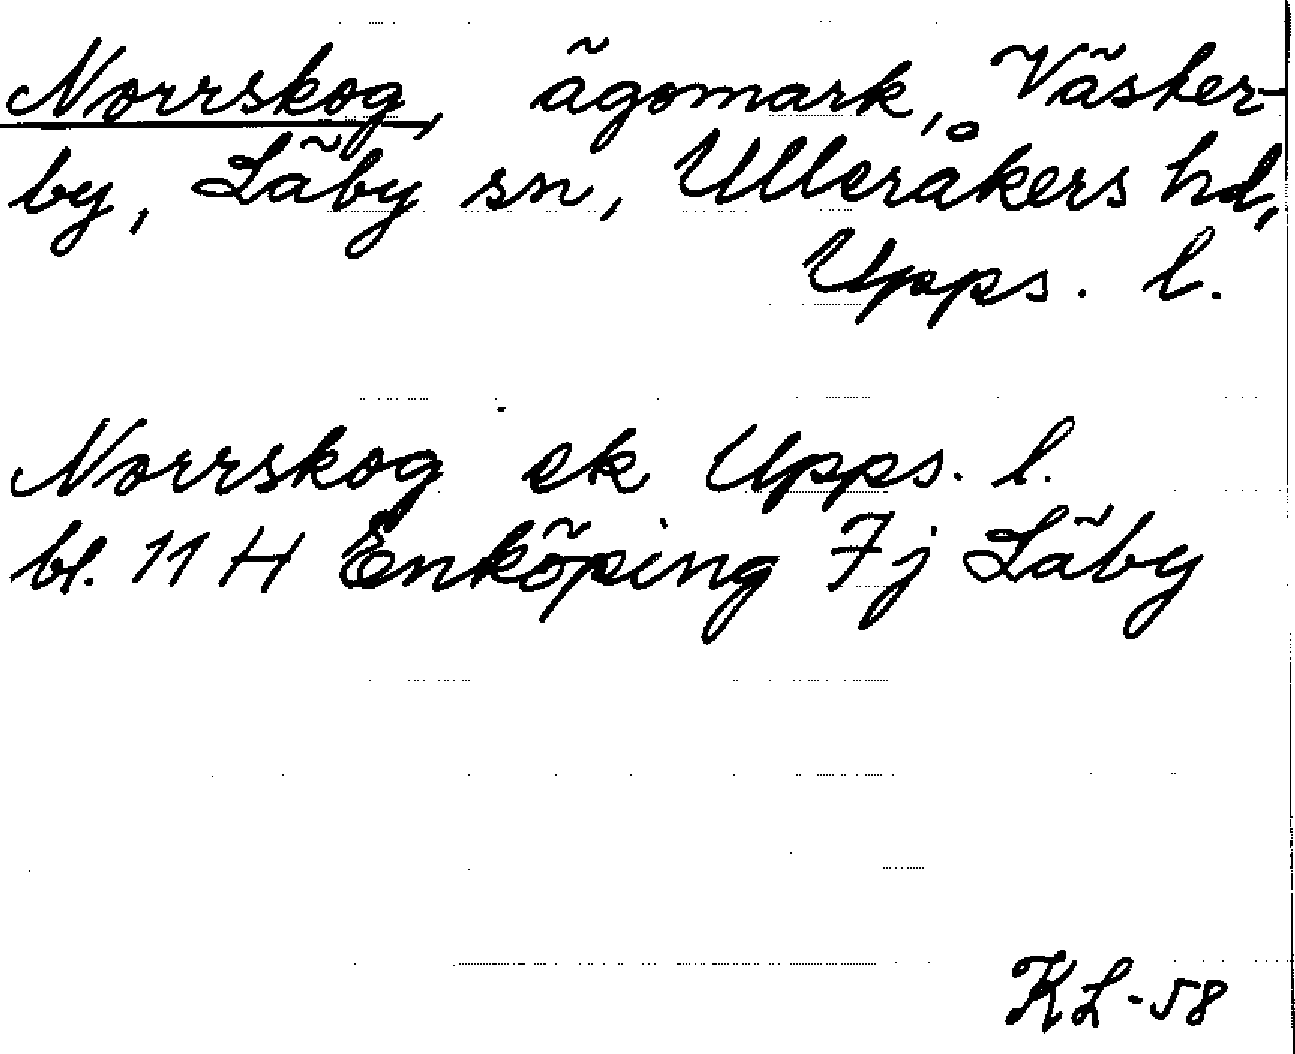 Norrskog, ägomark, Väster-
by, Läby sn, Ulleråkers hd,
Upps. l.
Norrskog ek Upps. l.
bl. 11 H Enköping 7j Läby
KL-58